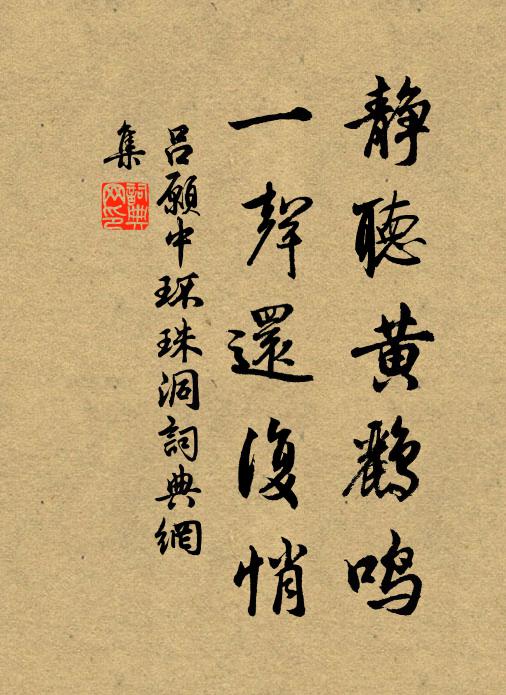 静聽黄鸝鸣
一聲還復悄
吕願中环珠洞詞典網
集
詞典網印